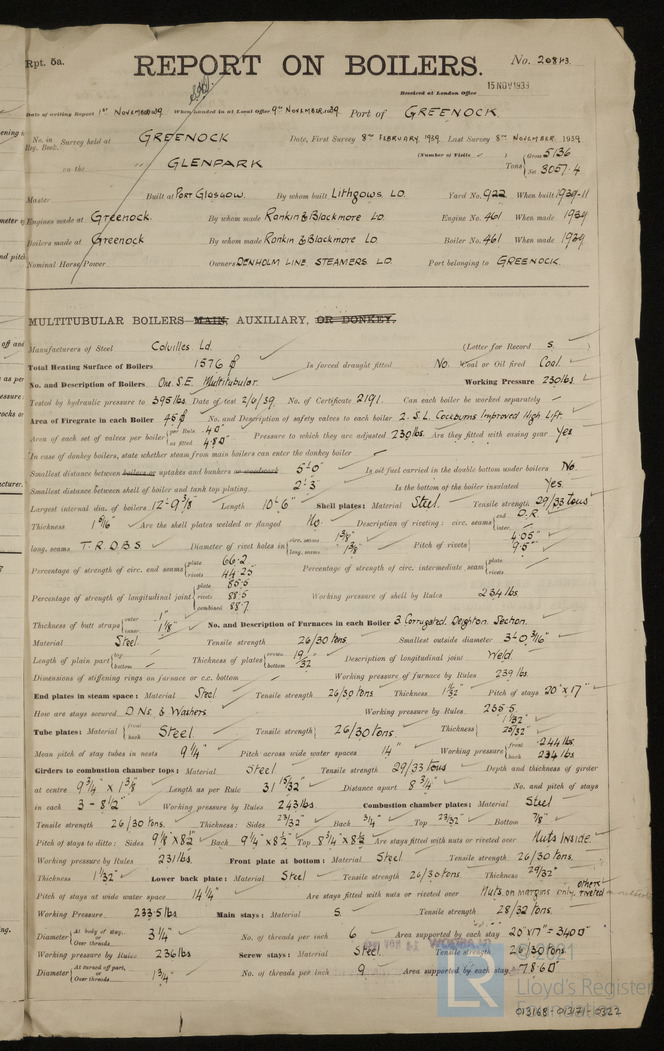 Rpt. 5a.
REPORT ON BOILERS.
No. 20843.
Received at London Office 15 NOV 1939
Date of writing Report 1st November 1939. When handed in at Local Office 9th November 1939 Port of GREENOCK.
No. in Reg. Book. Survey held at GREENOCK Date, First Survey 8th FEBRUARY 1939. Last Survey 8th NOVEMBER 1939
on the " GLENPARK (Number of Visits ) Tons { Gross 5136 Net 3057.4
Master Built at Port Glasgow. By whom built Lithgows Ld. Yard No. 922 When built 1939-11
Engines made at Greenock. By whom made Rankin & Blackmore Ld. Engine No. 461 When made 1939
Boilers made at Greenock By whom made Rankin & Blackmore Ld. Boiler No. 461 When made 1939
Nominal Horse Power Owners DENHOLM LINE STEAMERS LD. Port belonging to GREENOCK.
MULTITUBULAR BOILERS MAIN, AUXILIARY, OR DONKEY.
Manufacturers of Steel Colvilles Ld. (Letter for Record S. )
Total Heating Surface of Boilers 1576 Is forced draught fitted No. Coal or Oil fired Coal.
No. and Description of Boilers One S.E. Multitubular. Working Pressure 230 lbs.
Tested by hydraulic pressure to 395 lbs. Date of test 2/6/39. No. of Certificate 2191. Can each boiler be worked separately
Area of Firegrate in each Boiler 45 No. and Description of safety valves to each boiler 2. S.L. Cockburns Improved High Lift.
Area of each set of valves per boiler { per Rule 4.0" as fitted 4.80" Pressure to which they are adjusted 230 lbs. Are they fitted with easing gear Yes
In case of donkey boilers, state whether steam from main boilers can enter the donkey boiler
Smallest distance between boilers or uptakes and bunkers or woodwork 5'-0" Is oil fuel carried in the double bottom under boilers No.
Smallest distance between shell of boiler and tank top plating 2'-3" Is the bottom of the boiler insulated Yes.
Largest internal dia. of boilers 12'-9 3/8" Length 10'-6" Shell plates: Material Steel. Tensile strength 29/33 tons
Thickness 1 5/16" Are the shell plates welded or flanged No. Description of riveting: circ. seams { end D.R. inter.
long. seams T.R.D.B.S. Diameter of rivet holes in { circ. seams 1 3/8" long. seams 1 3/8" Pitch of rivets { 4.05" 9.5"
Percentage of strength of circ. end seams { plate 66.2 rivets 44.25 Percentage of strength of circ. intermediate seam { plate rivets
Percentage of strength of longitudinal joint { plate 85.5 rivets 88.5 combined 88.7 Working pressure of shell by Rules 234 lbs
Thickness of butt straps { outer 1" inner 1 1/8" No. and Description of Furnaces in each Boiler 3. Corrugated. Deighton. Section.
Material Steel Tensile strength 26/30 tons. Smallest outside diameter 3'-0 3/16"
Length of plain part { top bottom Thickness of plates { crown bottom 19/32" Description of longitudinal joint Weld.
Dimensions of stiffening rings on furnace or c.c. bottom Working pressure of furnace by Rules 239 lbs.
End plates in steam space: Material Steel Tensile strength 26/30 tons Thickness 1 1/32" Pitch of stays 20" x 17"
How are stays secured D Nts & Washers Working pressure by Rules 235.5
Tube plates: Material { front back Steel Tensile strength { 26/30 tons. Thickness { 1 1/32" 25/32"
Mean pitch of stay tubes in nests 9 1/4" Pitch across wide water spaces 14" Working pressure { front 244 lbs back 234 lbs
Girders to combustion chamber tops: Material Steel Tensile strength 29/33 tons Depth and thickness of girder
at centre 9 3/4" x 1 3/8" Length as per Rule 31 15/32" Distance apart 8 3/4" No. and pitch of stays
in each 3 - 8 1/2" Working pressure by Rules 243 lbs Combustion chamber plates: Material Steel
Tensile strength 26/30 tons. Thickness: Sides 23/32" Back 3/4" Top 23/32" Bottom 7/8"
Pitch of stays to ditto: Sides 9 1/8" x 8 1/2" Back 9 1/4" x 8 1/2" Top 8 3/4" x 8 1/2" Are stays fitted with nuts or riveted over Nuts Inside.
Working pressure by Rules 231 lbs. Front plate at bottom: Material Steel Tensile strength 26/30 tons.
Thickness 1 1/32" Lower back plate: Material Steel Tensile strength 26/30 tons. Thickness 29/32"
Pitch of stays at wide water space 14 1/4" Are stays fitted with nuts or riveted over Nuts on margins only, others riveted
Working Pressure 233.5 lbs Main stays: Material S. Tensile strength 28/32 tons.
Diameter { At body of stay, or Over threads 3 1/4" No. of threads per inch 6 Area supported by each stay 20" x 17" = 340"
Working pressure by Rules 236 lbs Screw stays: Material Steel. Tensile strength 26/30 tons
Diameter { At turned off part, or Over threads 1 3/4" No. of threads per inch 9 Area supported by each stay 78.6
© 2021
Lloyd's Register
Foundation
LR
013168-013171-0327